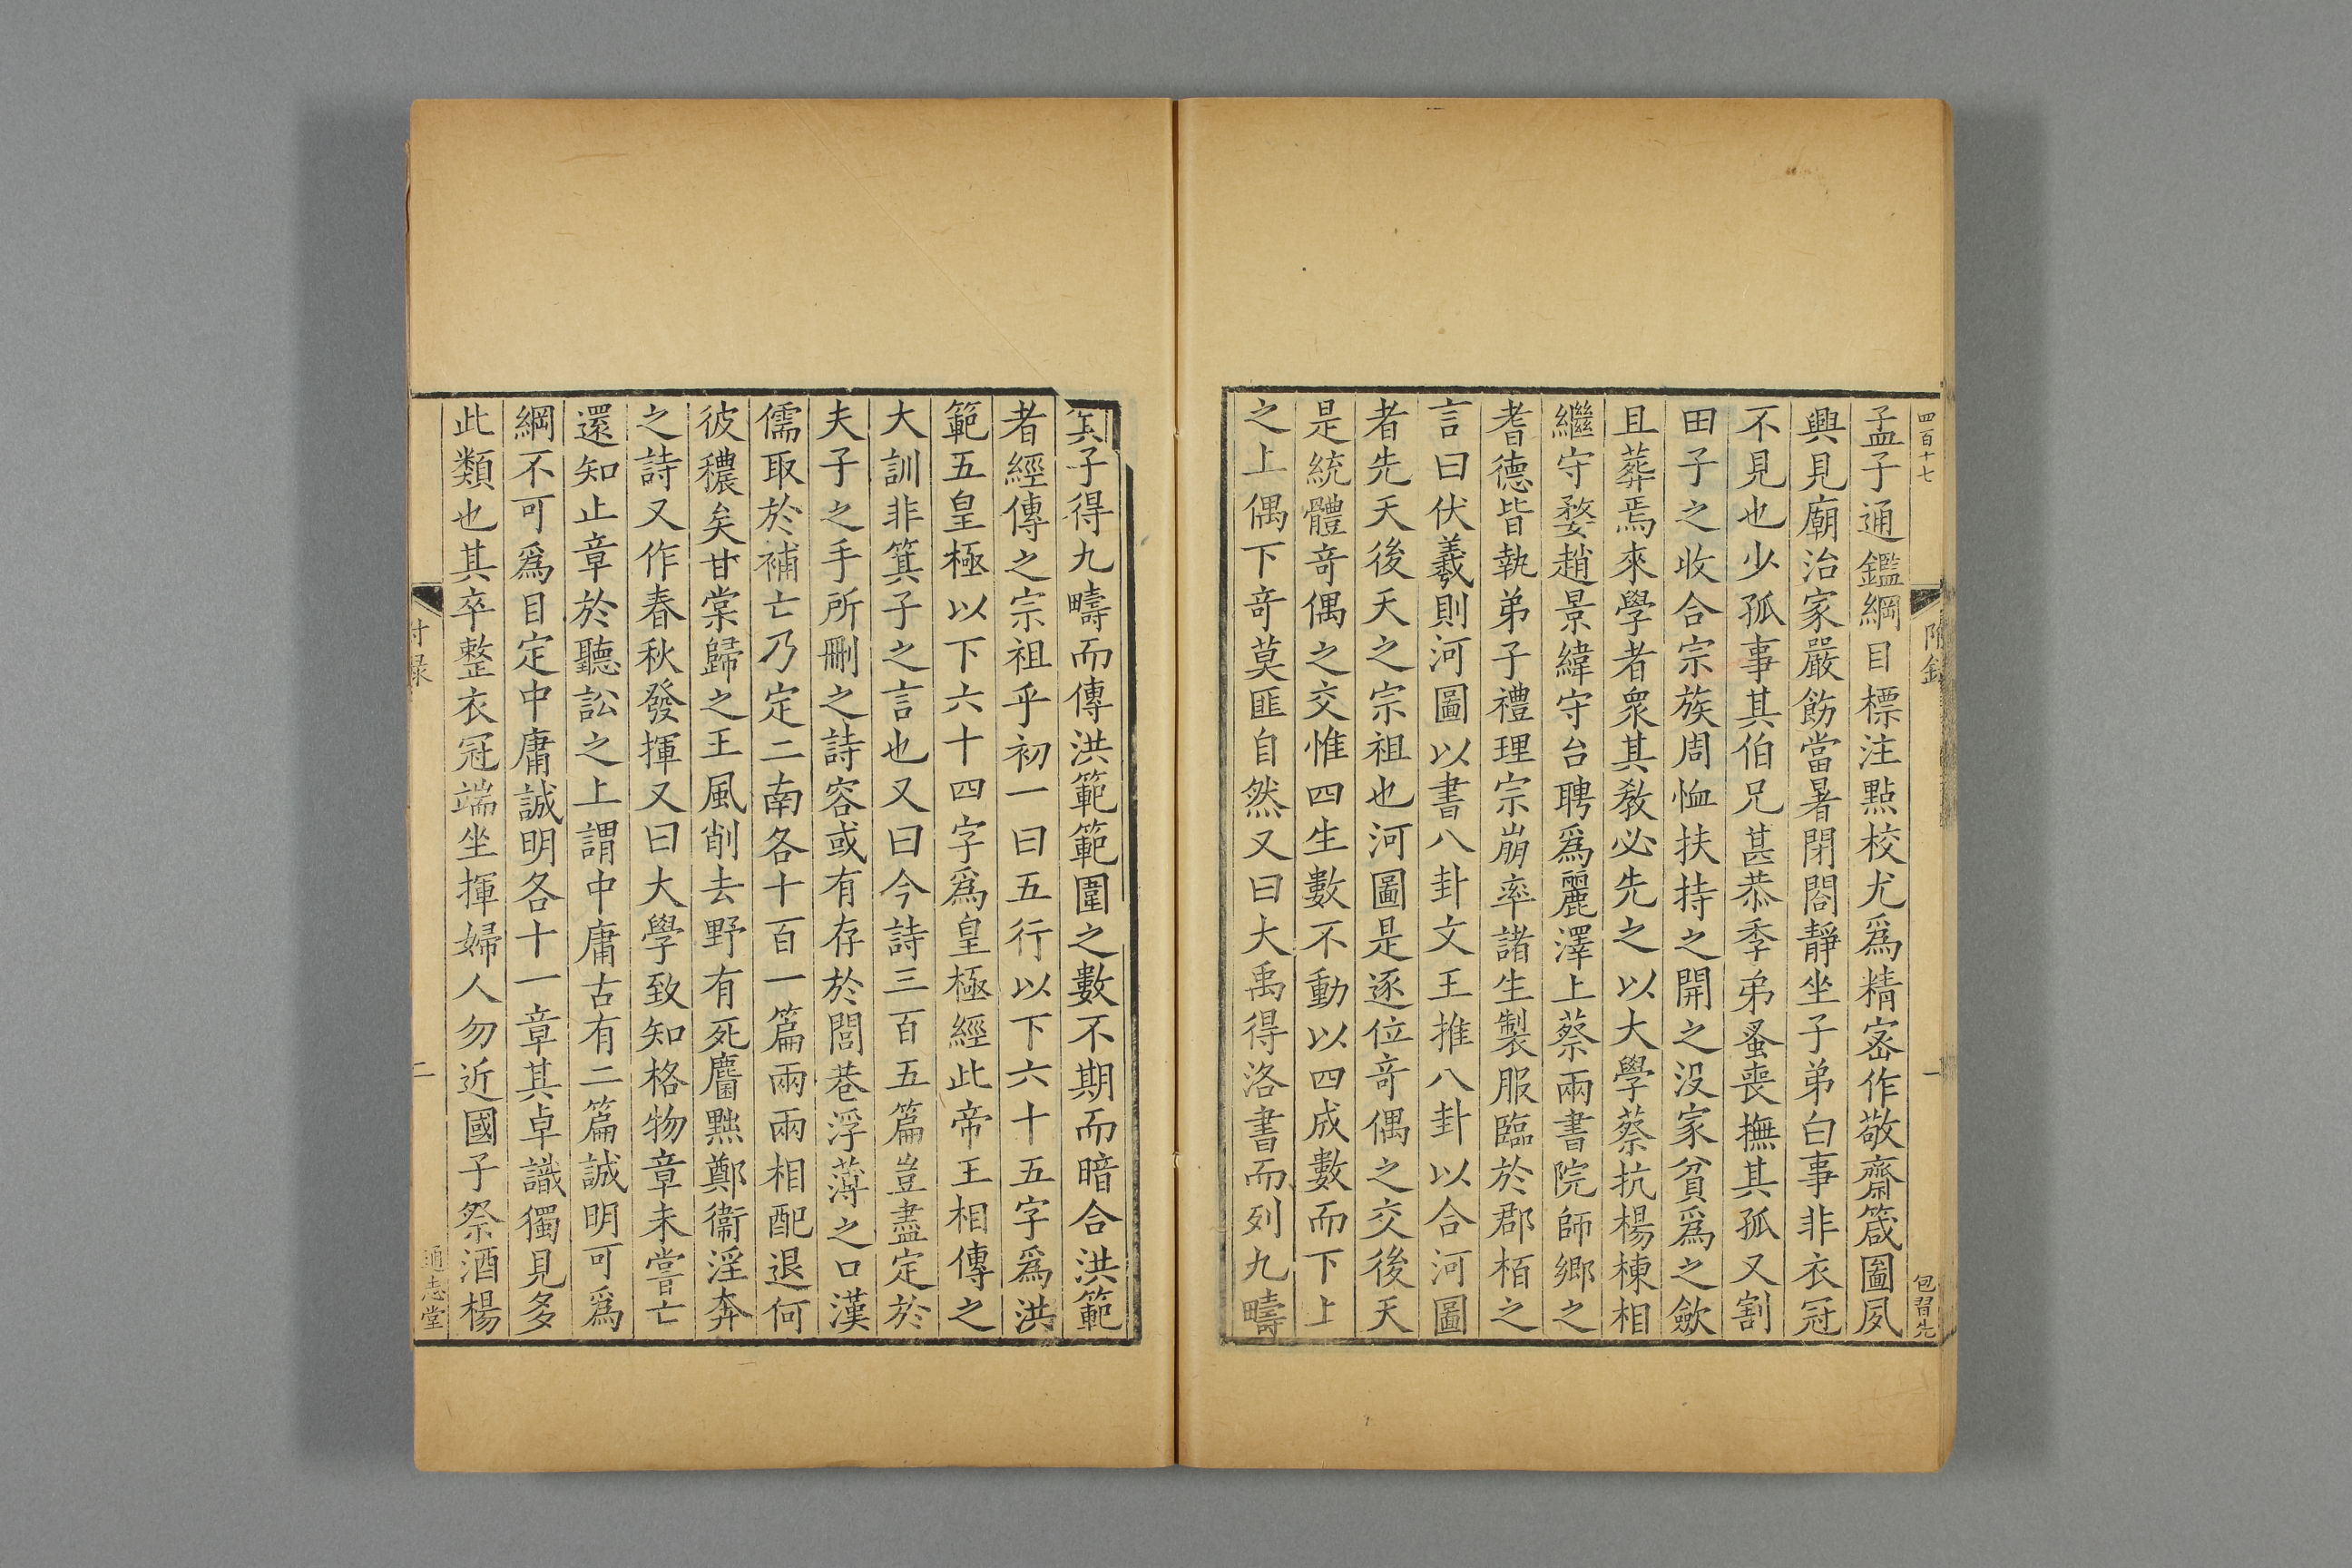 四百十七
附錄
一
包習先
孟子通鑑綱目標注點校尤爲精宻作敬齋箴圖夙
興見廟治家嚴飭當暑閉閤靜坐子弟白事非衣冠
不見也少孤事其伯兄甚恭季弟蚤喪撫其孤又割
田子之收合宗族周恤扶持之開之没家貧爲之歛
且葬焉來學者衆其教必先之以大學蔡抗楊棟相
繼守婺趙景緯守台聘爲麗澤上蔡兩書院師鄉之
耆德皆執弟子禮理宗崩率諸生製服臨於郡栢之
言曰伏羲則河圖以書八卦文王推八卦以合河圖
者先天後天之宗祖也河圖是逐位奇偶之交後天
是統體奇偶之交惟四生數不動以四成數而下上
之上偶下奇莫匪自然又曰大禹得洛書而列九疇
箕子得九疇而傳洪範範圍之數不期而暗合洪範
者經傳之宗祖乎初一曰五行以下六十五字爲洪
範五皇極以下六十四字爲皇極經此帝王相傳之
大訓非箕子之言也又曰今詩三百五篇豈盡定於
夫子之手所刪之詩容或有存於閭巷浮薄之口漢
儒取於補亡乃定二南各十百一篇兩兩相配退何
彼穠矣甘棠歸之王風削去野有死麕黜鄭衞淫奔
之詩又作春秋發揮又曰大學致知格物章未嘗亡
還知止章於聽訟之上謂中庸古有二篇誠明可爲
綱不可爲目定中庸誠明各十一章其卓識獨見多
此類也其卒整衣冠端坐揮婦人勿近國子祭酒楊
付録
二
通志堂